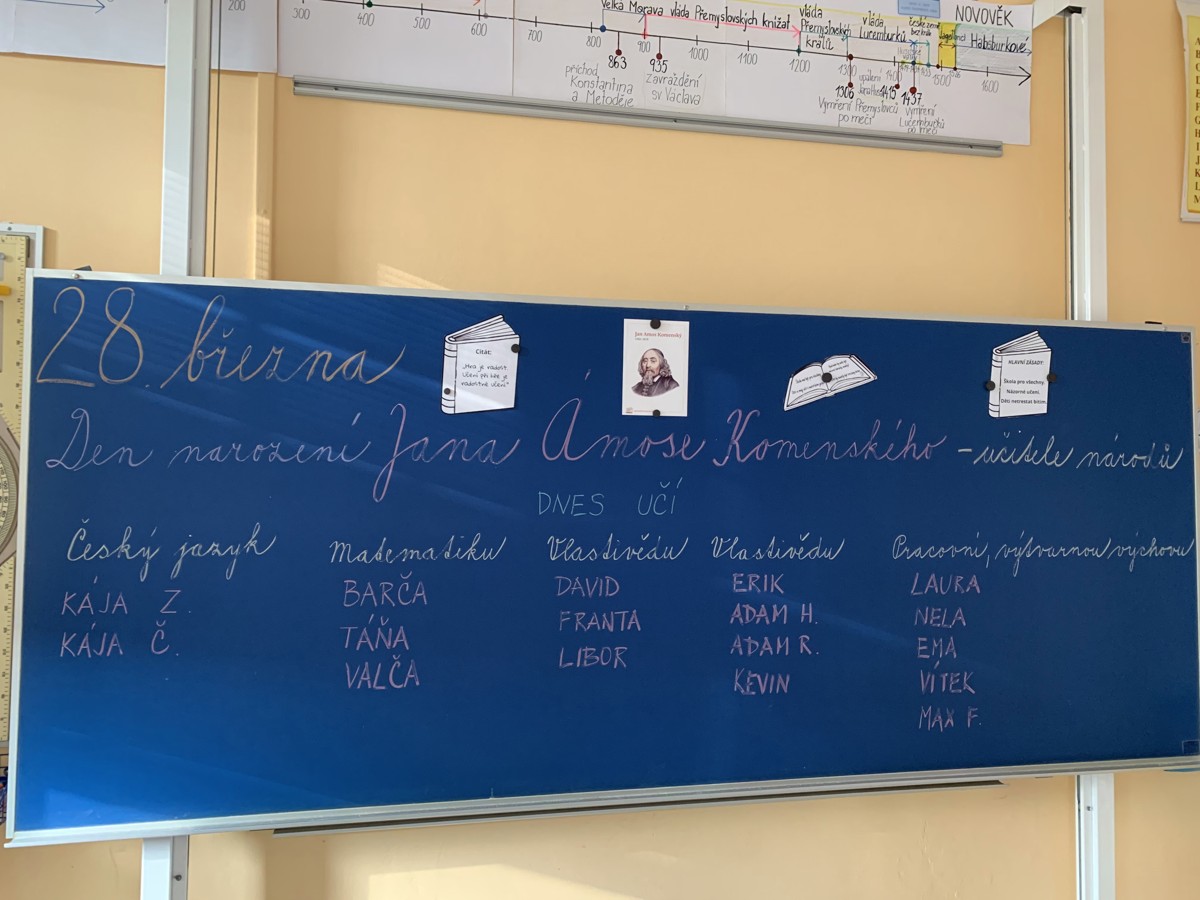 200
300 400 500 600 700 800 900 1000 1100 1200 1300 1400 1500 1600
Velká Morava
vláda Přemyslovských knížat
vláda
Přemyslovských
králů
vláda
Lucemburků
NOVOVĚK
Habsburkové
863
příchod
Konstantina
a Metoděje
935
zavraždění
sv Václava
1306
Vymření Přemyslovců
po meči
upálení
1415
1437
Vymření
Lucemburků
po meči
28. března
Citát:
„Hra je radost.
Učení při hře je
radostné učení."
Jan Amos Komenský
HLAVNÍ ZÁSADY:
Škola pro všechny.
Názorné učení.
Děti netrestat bitím.
Den narození Jana Ámose Komenského – učitele národů
DNES UČÍ
Český jazyk
KÁJA Z.
KÁJA Č.
Matematiku
BARČA
TÁŇA
VALČA
Vlastivědu
DAVID
FRANTA
LIBOR
Vlastivědu
ERIK
ADAM H.
ADAM R.
KEVIN
Pracovní, výtvarnou výchovu
LAURA
NELA
EMA
VÍTEK
MAX F.